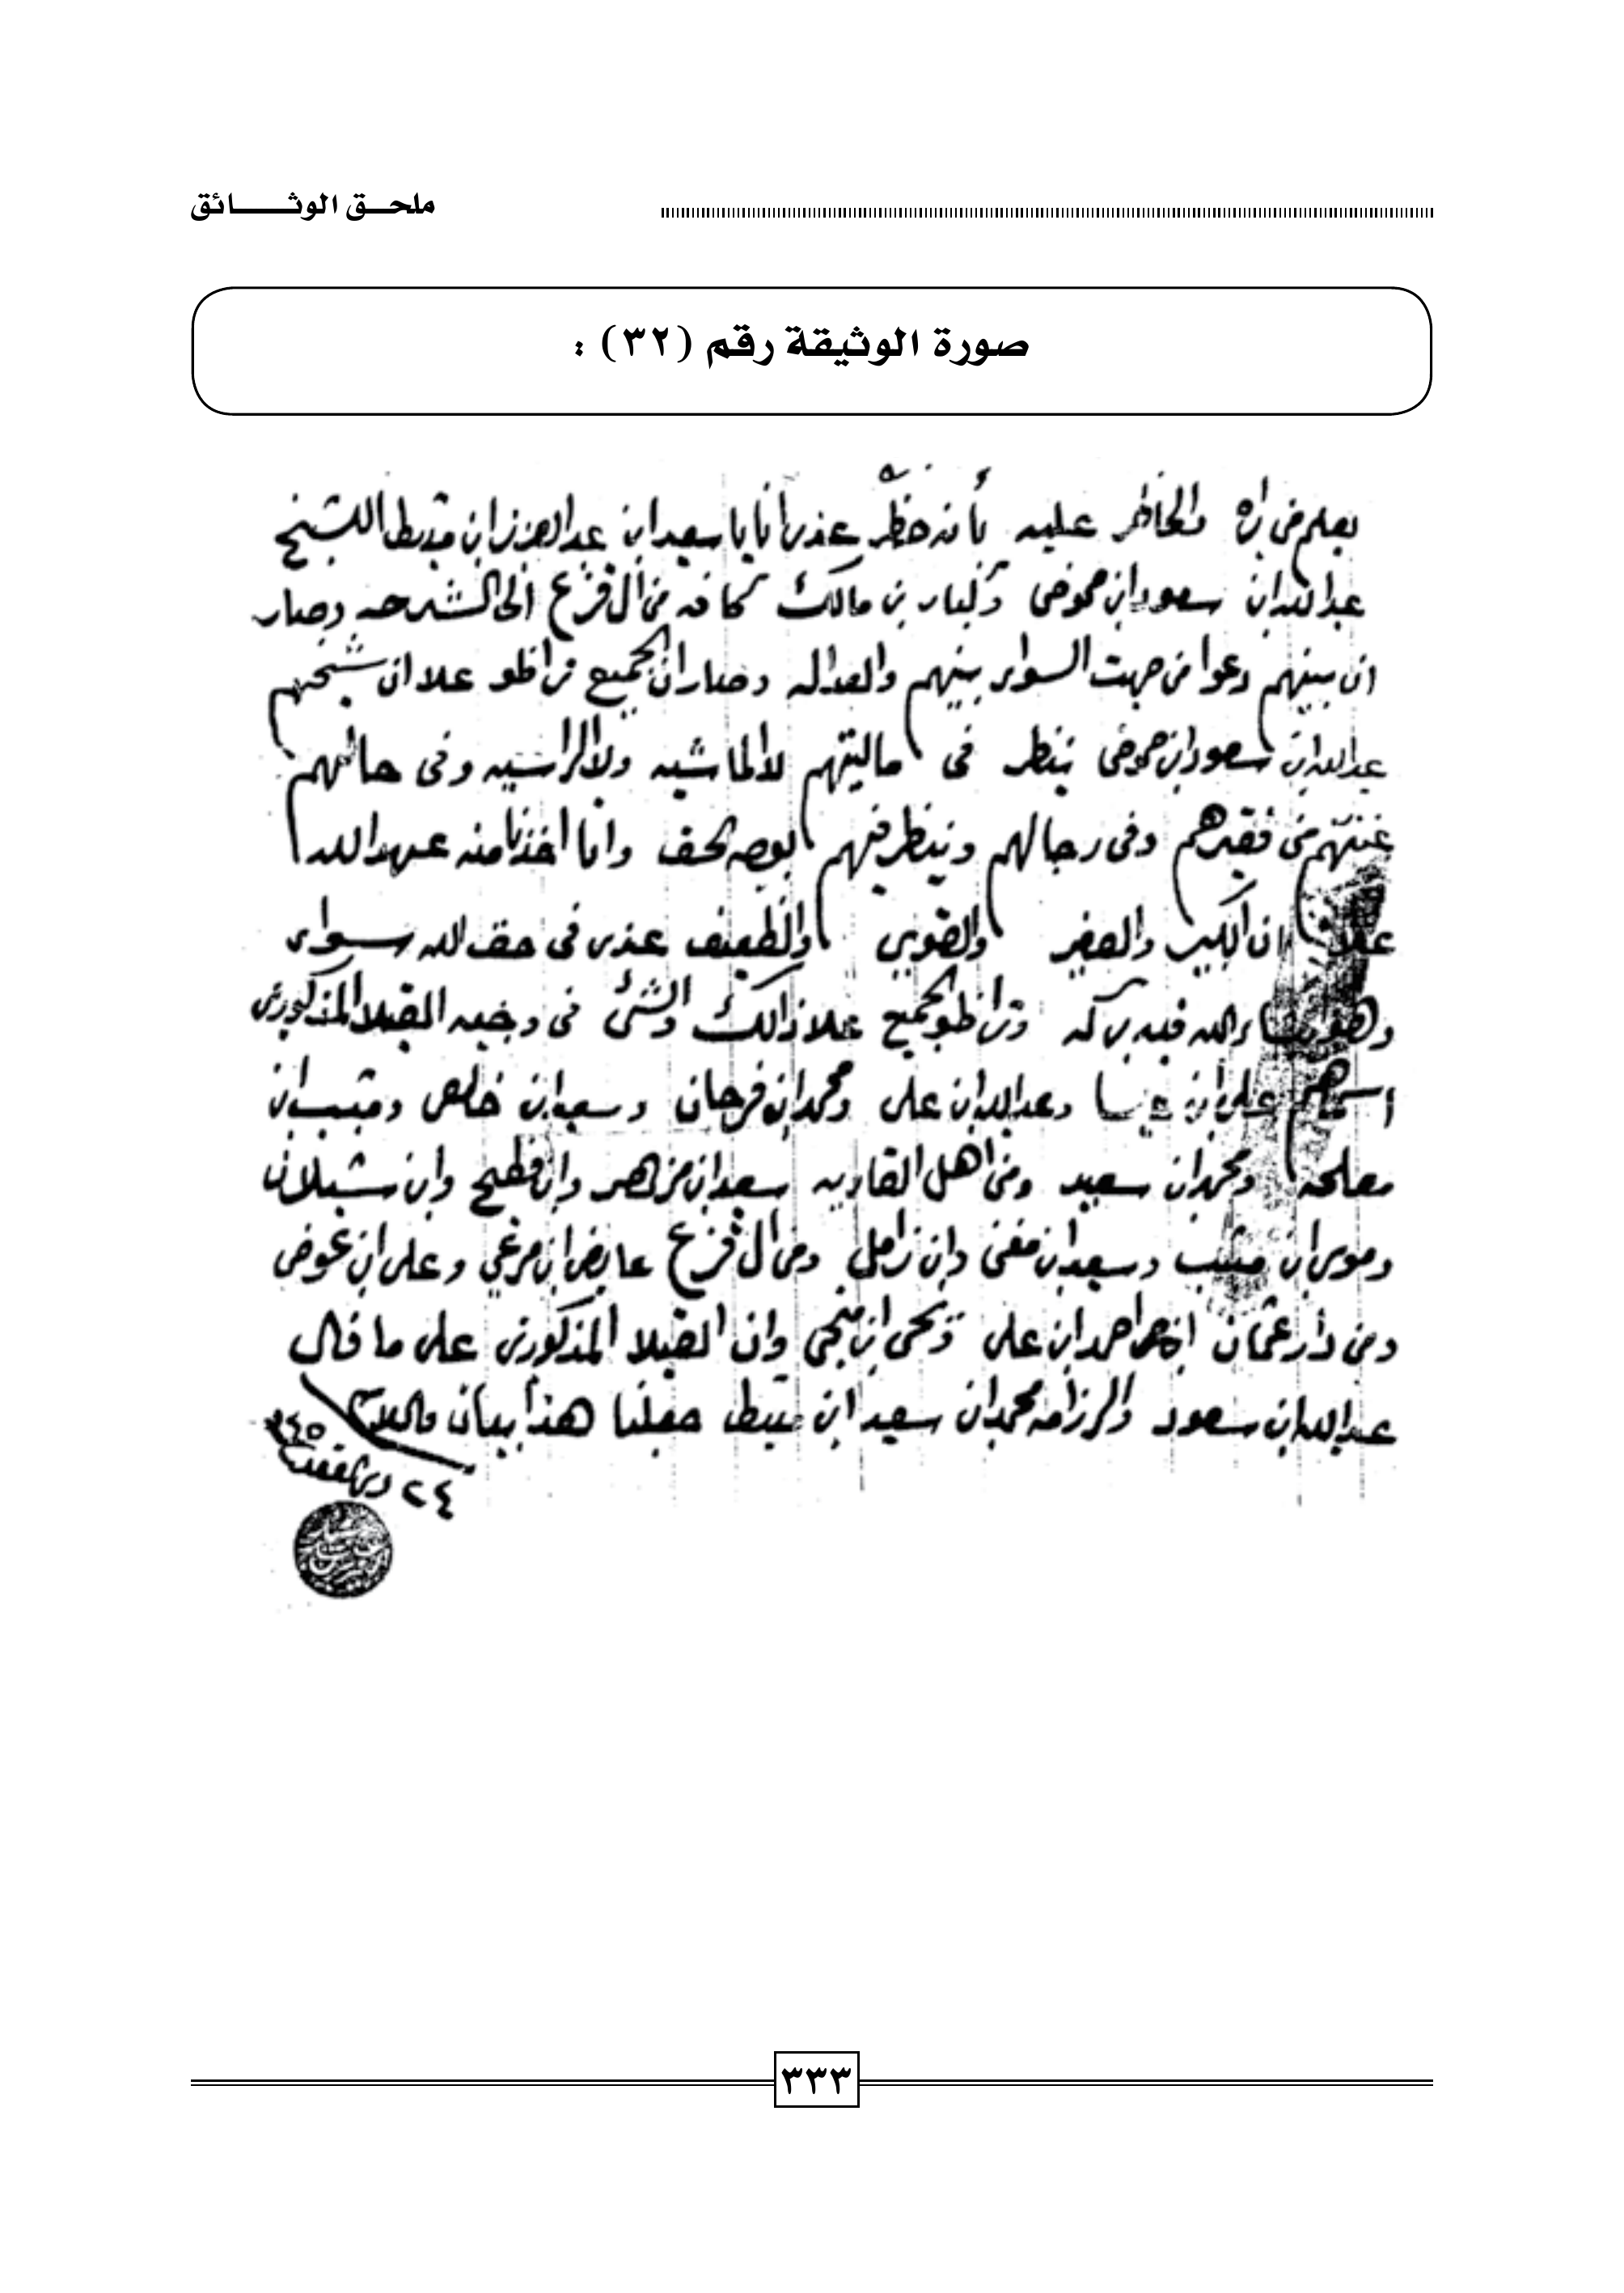 ملحق الوثائق
صورة الوثيقة رقم (٣٢) :
يعلم من راه والحاظر عليه بأنه حظر عندي أنا يا سعيد ابن عبد العزيز ابن مشيط الشيخ
عبد الله ابن سعود ابن عموض وكبار بن مالك كافه من ال قزع الى الشرحه وصار
ان بينهم دعوا من جهت السواىر بينهم والعداله وصار ان الجميع تراظو علا ان شيخهم
عبد الله ابن سعود ابن عموض ينظر في ماليتهم لا الماشيه ولا الراسيه وفي حالهم
غنيهم من فقيرهم وفي رجالهم وينظر فيهم بوجه الحق وانا اخذنا منه عهد الله
علا ان الكبير والصغير والقوي والظعيف عندي في حق الله سواىر
وهو والله فيه بركه وتراظو الجميع علا ذالك والشي في وجيه القبلا المذكورين
اسمهم علي ابن وعبد الله ابن علي ومحمد ابن فرحان وسعيد ابن خلص ومشبب ابن
معلحه ومحمد ابن سعيد ومن اهل القاريه سعيد ابن مزهر وابن فطيح وابن شبلان
وموسى ابن مشبب وسعيد ابن مفني وابن زامل ومن ال قزع عايض ابن مرعي وعلي ابن عوض
ومن دار عثمان احمد ابن علي ويحي ابن منجي وان القبلا المذكورين على ما قال
عبد الله ابن سعود والرزامه محمد ابن سعيد ابن مشيط جعلنا هذا بيان والسلام
٢٤ ذي القعده
٣٣٣